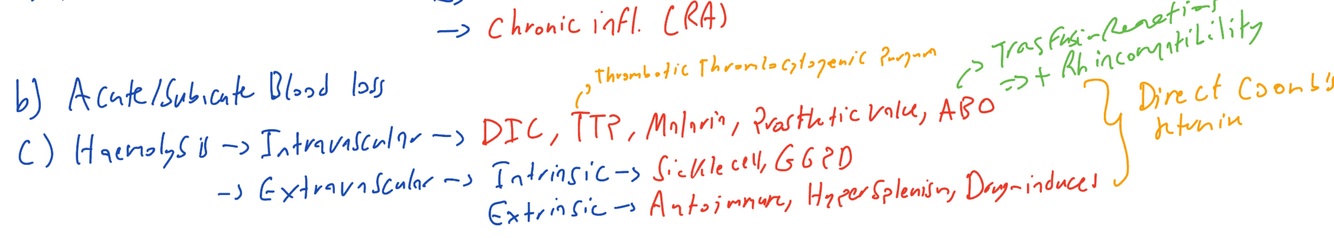 → Chronic infl. (RA)
Trasfusion Reaction
⇒ + Rh incompatibility
Thrombotic Thrombocytogenic Purpura
b) Acute/Subicate Blood loss
Direct Coomb's
c) Haemolysis → Intravascular → DIC, TTP, Malaria, Prosthetic valve, ABO
→ Extravascular → Intrinsic → Sickle cell, G6PD
Extrinsic → Autoimmune, Hypersplenism, Drug-induces